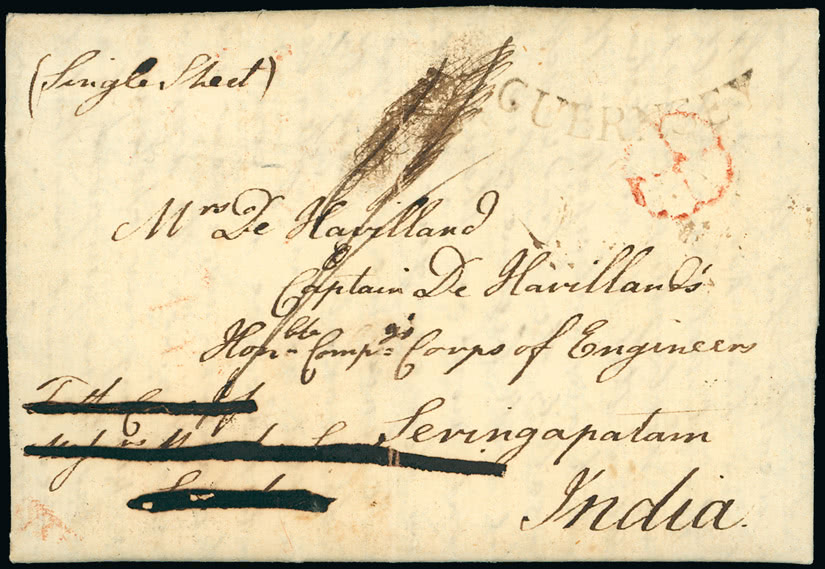 (Single Sheet)
GUERNSEY
Mrs De Havilland
Captain De Havilland's
Honble Compys Corps of Engineers
Seringapatam
India.